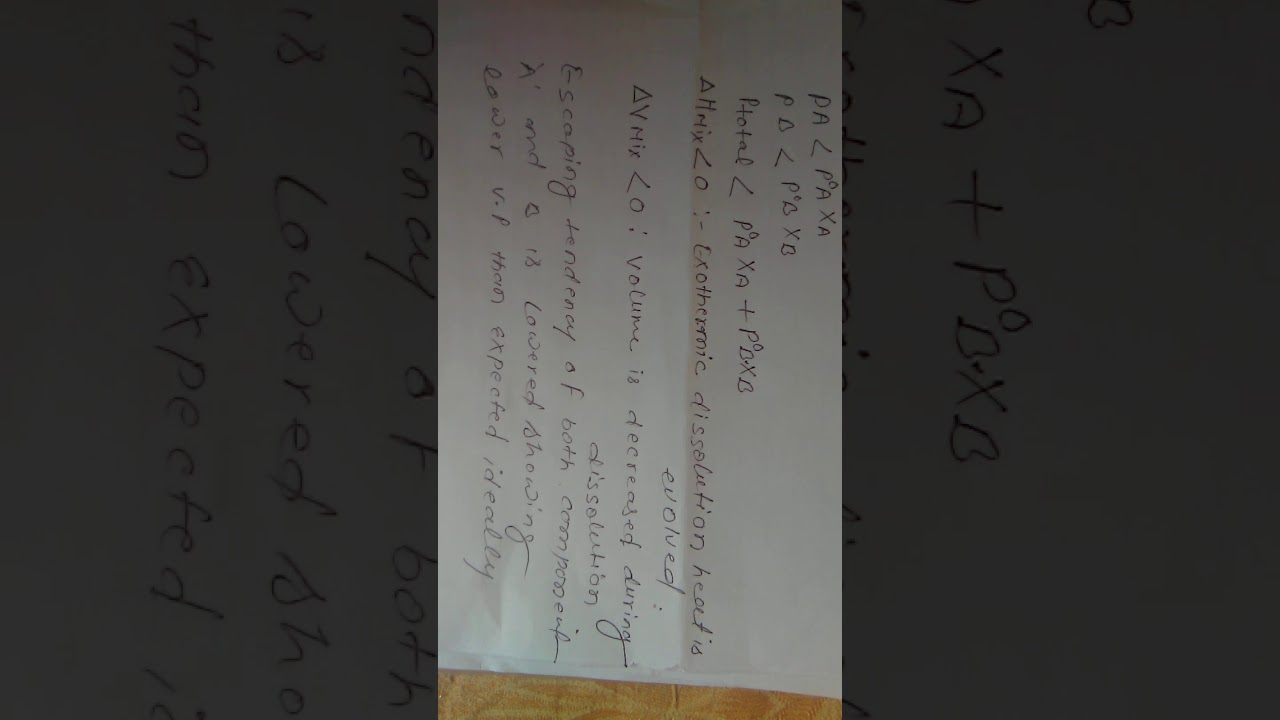 PA < P⁰A XA
PB < P⁰B XB
Ptotal < P⁰A XA + P⁰B·XB
ΔHMix < 0 :- Exothermic dissolution heat is
evolved :
ΔVMix < 0 : volume is decreased during
dissolution
Escaping tendency of both component
A' and B is lowered showing
lower V.P than expected ideally